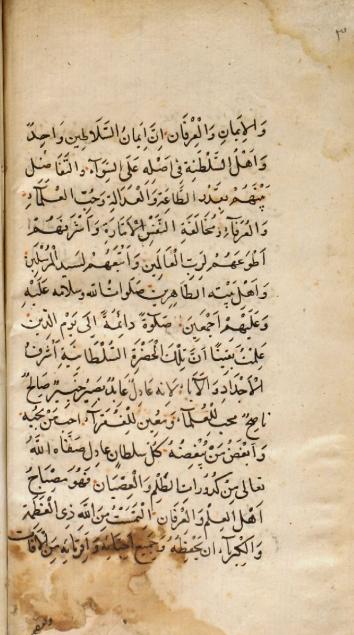 ٣
والايمان والعرفان ان ايمان السلاطين واحد
واهل السلطنة في اصله على السواء والتفاضل
بينهم بقدر الطاعة والعدالة وحب العلماء
والعرفاء ومخالفة النفس الامارة واشرفهم
اطوعهم لرب العالمين واتبعهم لسيد المرسلين
واهل بيته الطاهرين صلوات الله وسلامه عليه
وعليهم اجمعين صلوة دائمة الى يوم الدين
علمت يقينا ان تلك الحضرة السلطانية اشرف
الاجداد والآباء لانه عادل عالم بصير خبير صالح
ناصح محب للعلماء ومعين للفقراء احب من يحبه
وابغض من يبغضه كل سلطان عادل صفاه الله
تعالى من كدورات الظلم والعصيان فهو مصباح
اهل العلم والعرفان التمست من الله ذي العظمة
والكبرياء ان يحفظه وجميع احبائه واقربائه من الآفات